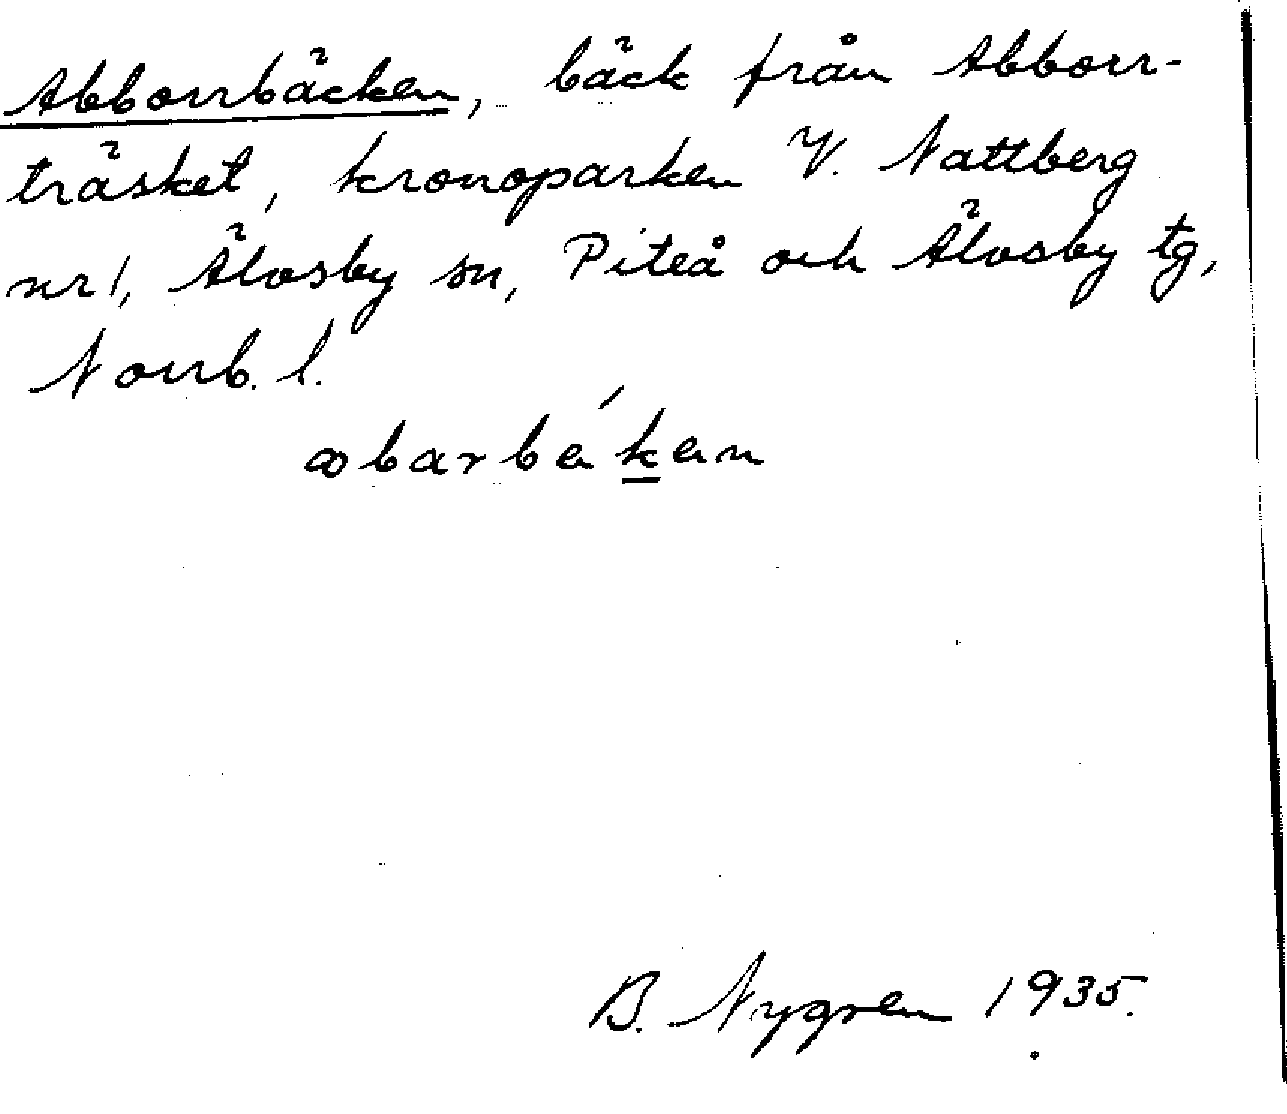 Abborrbäcken, bäck från Abborr-
träsket, kronoparken V. Nattberg
nr 1, Älvsby sn, Piteå och Älvsby tg,
Norrb. l.
ꝏbarbéken
B. Nygren 1935.